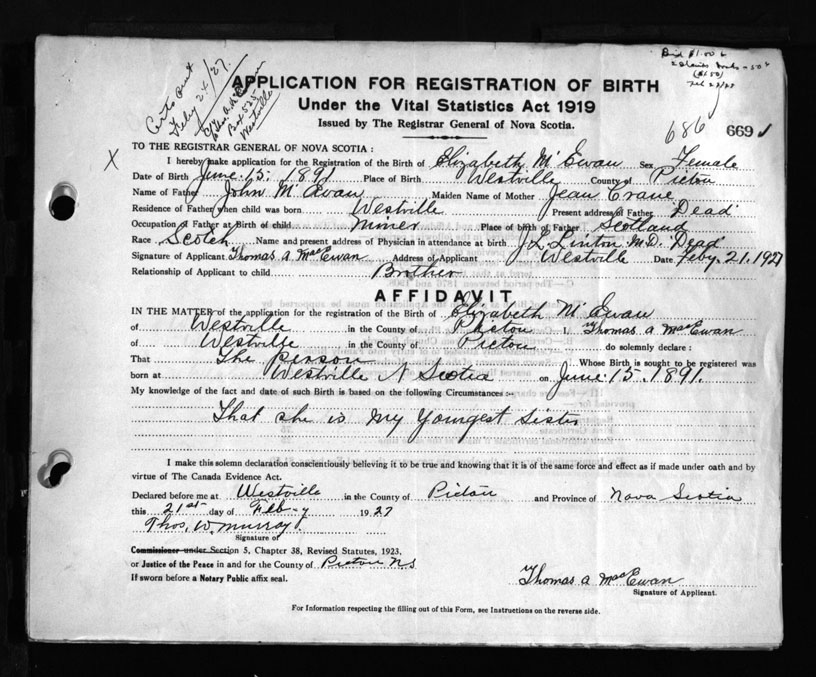 Certs out
Feby 24/27.
Box 525
Westville
Paid $1.00 &
($1.50)
Feb 23/27
APPLICATION FOR REGISTRATION OF BIRTH
Under the Vital Statistics Act 1919
Issued by The Registrar General of Nova Scotia.
686 669
TO THE REGISTRAR GENERAL OF NOVA SCOTIA :
X
I hereby make application for the Registration of the Birth of Elizabeth McEwan Sex Female
Date of Birth June. 15. 1891 Place of Birth Westville County of Pictou
Name of Father John McEwan Maiden Name of Mother Jean Crane
Residence of Father when child was born Westville Present address of Father Dead
Occupation of Father at Birth of child Miner Place of birth of Father Scotland
Race Scotch Name and present address of Physician in attendance at birth J. L. Linton M.D. Dead
Signature of Applicant Thomas A MacEwan Address of Applicant Westville Date Feby. 21. 1927
Relationship of Applicant to child Brother
AFFIDAVIT
IN THE MATTER of the application for the registration of the Birth of Elizabeth McEwan
of Westville in the County of Pictou I, Thomas A MacEwan
of Westville in the County of Pictou do solemnly declare :
That The person Whose Birth is sought to be registered was
born at Westville N Scotia on June. 15. 1891.
My knowledge of the fact and date of such Birth is based on the following Circumstances :-
That she is my Youngest Sister
I make this solemn declaration conscientiously believing it to be true and knowing that it is of the same force and effect as if made under oath and by
virtue of The Canada Evidence Act.
Declared before me at Westville in the County of Pictou and Province of Nova Scotia
this 21st day of Feb-y 1927
Thos. W. Murray
Signature of
Commissioner under Section 5, Chapter 38, Revised Statutes, 1923.
or Justice of the Peace in and for the County of Pictou N.S
If sworn before a Notary Public affix seal.
Thomas A MacEwan
Signature of Applicant.
For Information respecting the filling out of this Form, see Instructions on the reverse side.